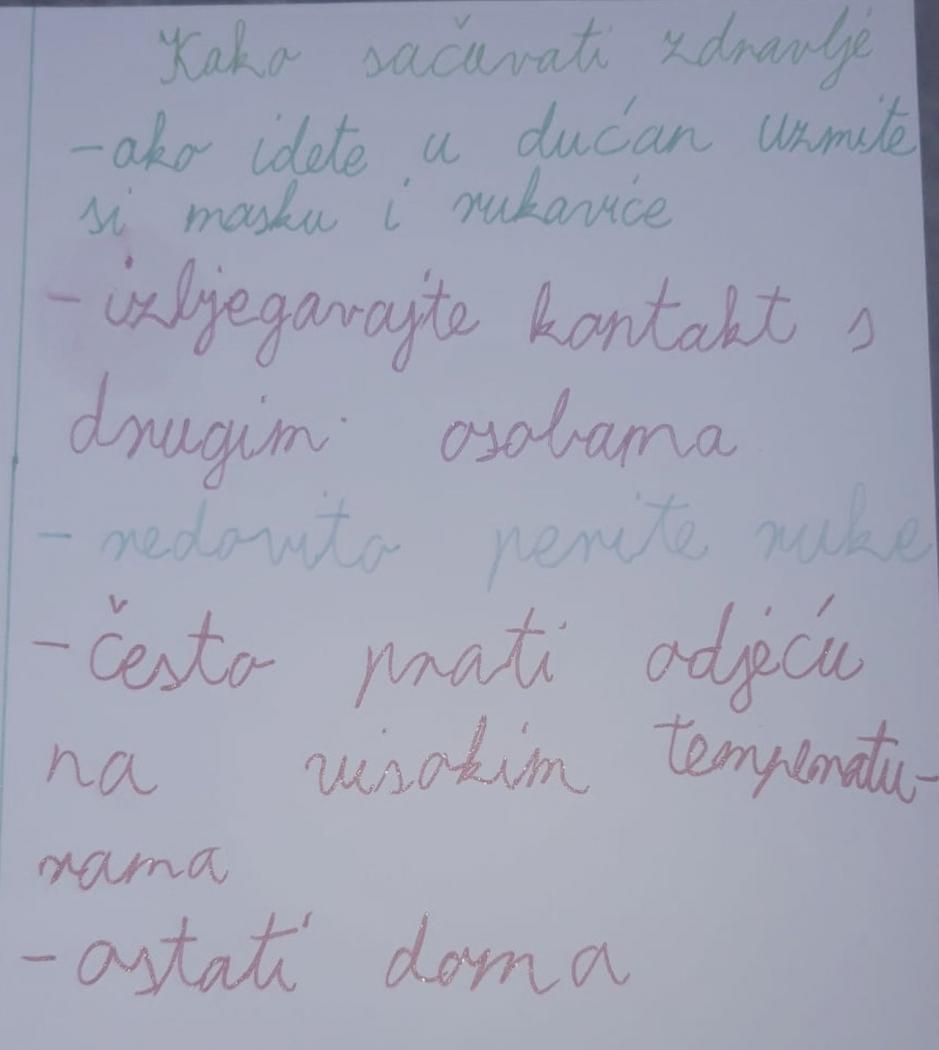 Kako sačuvati zdravlje
- ako idete u dućan uzmite
si masku i rukavice
- izbjegavajte kontakt s
drugim osobama
- redovito perite ruke
- često prati odjeću
na visokim temperatu-
rama
- ostati doma